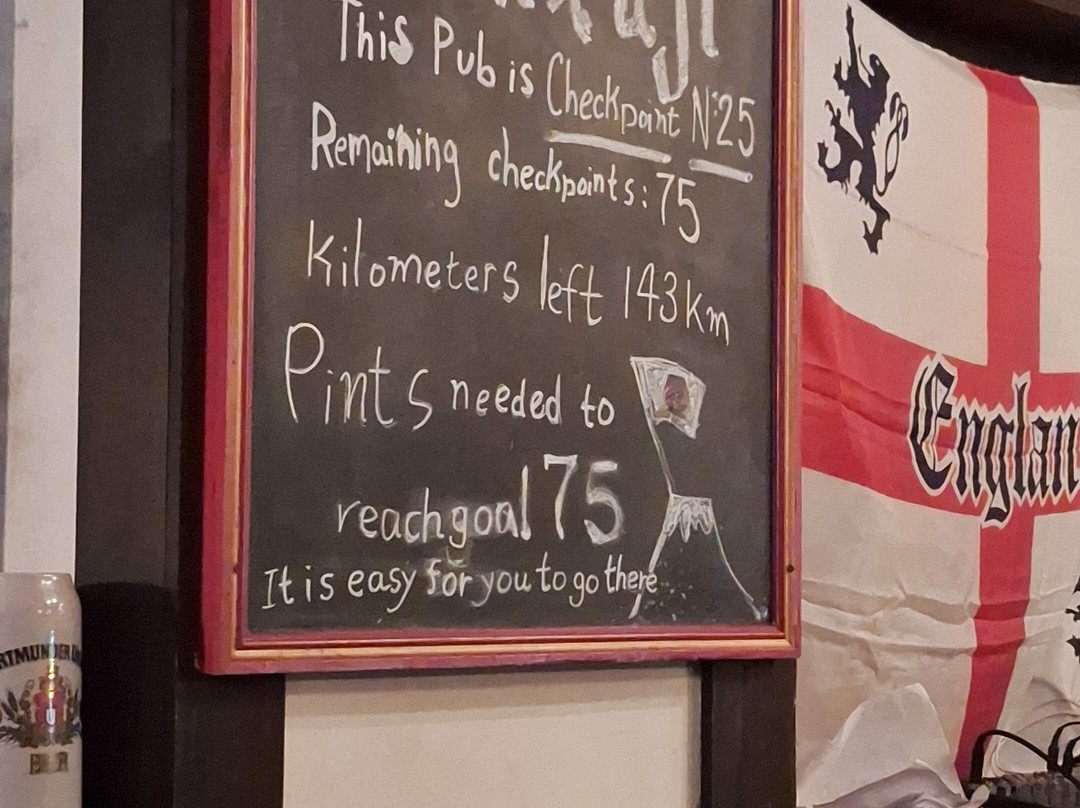 This Pub is Checkpoint N:25
Remaining checkpoints: 75
Kilometers left 143km
Pints needed to
reach goal 75
It is easy for you to go there
Englan
RTMUNDER
BIER